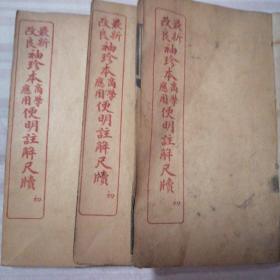 最新
改良
袖珍本高學應用便明註解尺牘
初
最新
改良
袖珍本高學應用便明註解尺牘
初
最新
改良
袖珍本高學應用便明註解尺牘
初